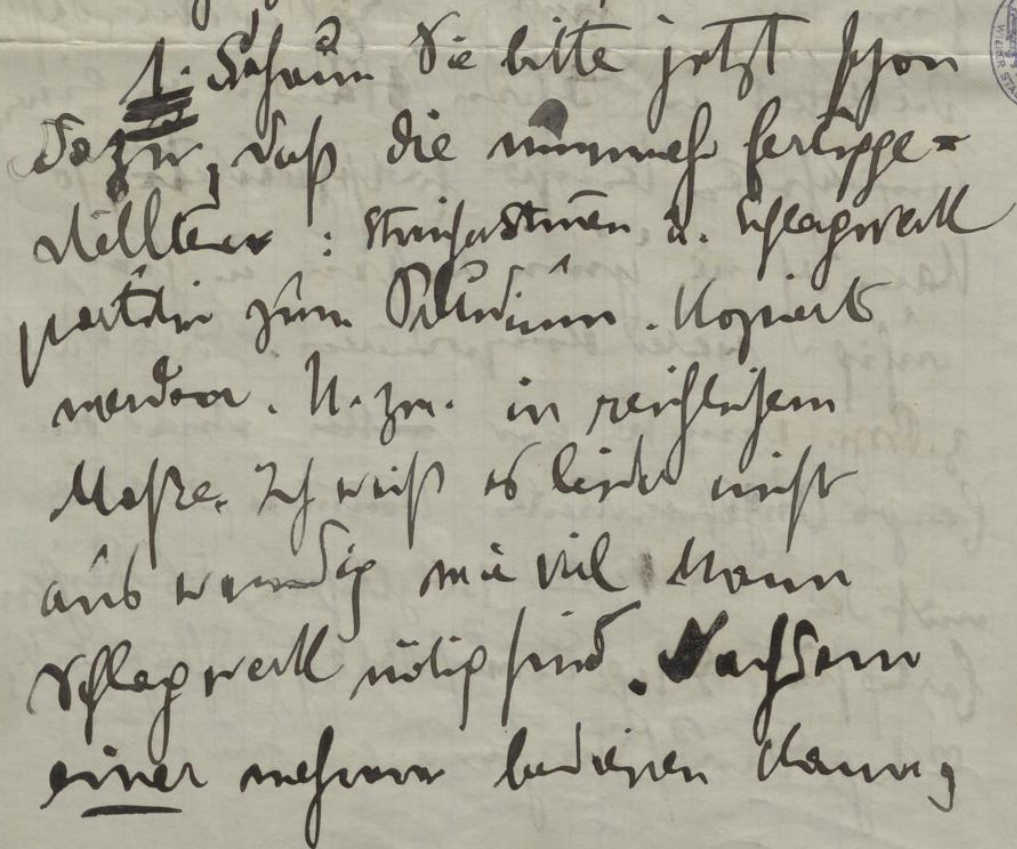 1. Schaun Sie bitte jetzt schon
dazu, daß die nunmehr fertigge=
stellten : Streicherstimen u. Schlagwerk
partien zum Studium. Kopiert
werden. U. zw. in reichlichem
Maße. Ich weiß es leider nicht
auswendig wie viel Mann
Schlagwerk nötig sind. Nachdem
einer mehrere bedienen kann,